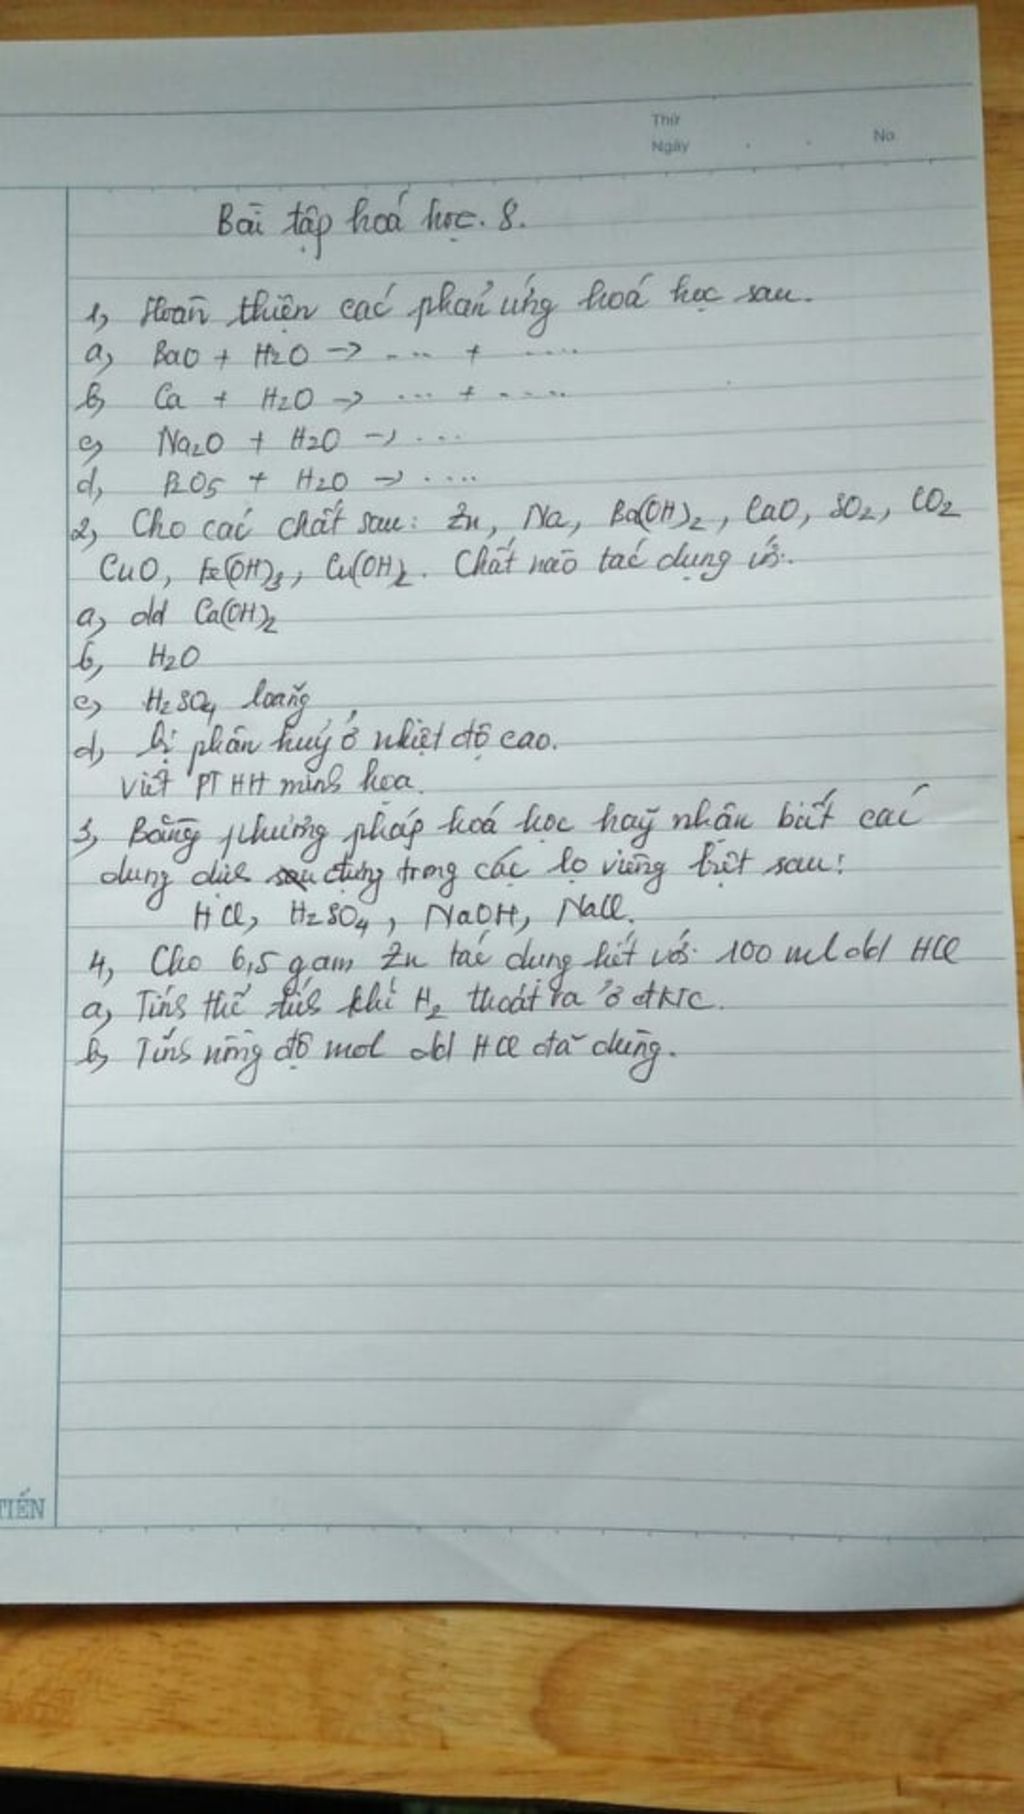 Thứ
Ngày . . No
Bài tập hoá học. 8.
1, Hoàn thiện các phản ứng hoá học sau.
a, BaO + H2O → .... + ....
b, Ca + H2O → ... + .....
c, Na2O + H2O → ...
d, P2O5 + H2O → ....
2, Cho các chất sau: Zn, Na, Ba(OH)2, CaO, SO2, CO2
CuO, Fe(OH)3, Cu(OH)2. Chất nào tác dụng với:
a, dd Ca(OH)2
b, H2O
c, H2SO4 loãng
d, bị phân huỷ ở nhiệt độ cao.
Viết PTHH minh hoạ.
3, Bằng phương pháp hoá học hãy nhận biết các
dung dịch sau đựng trong các lọ riêng biệt sau:
HCl, H2SO4, NaOH, NaCl.
4, Cho 6,5 gam Zn tác dụng hết với 100 ml dd HCl
a, Tính thể tích khí H2 thoát ra ở đktc.
b, Tính nồng độ mol dd HCl đã dùng.
TIẾN